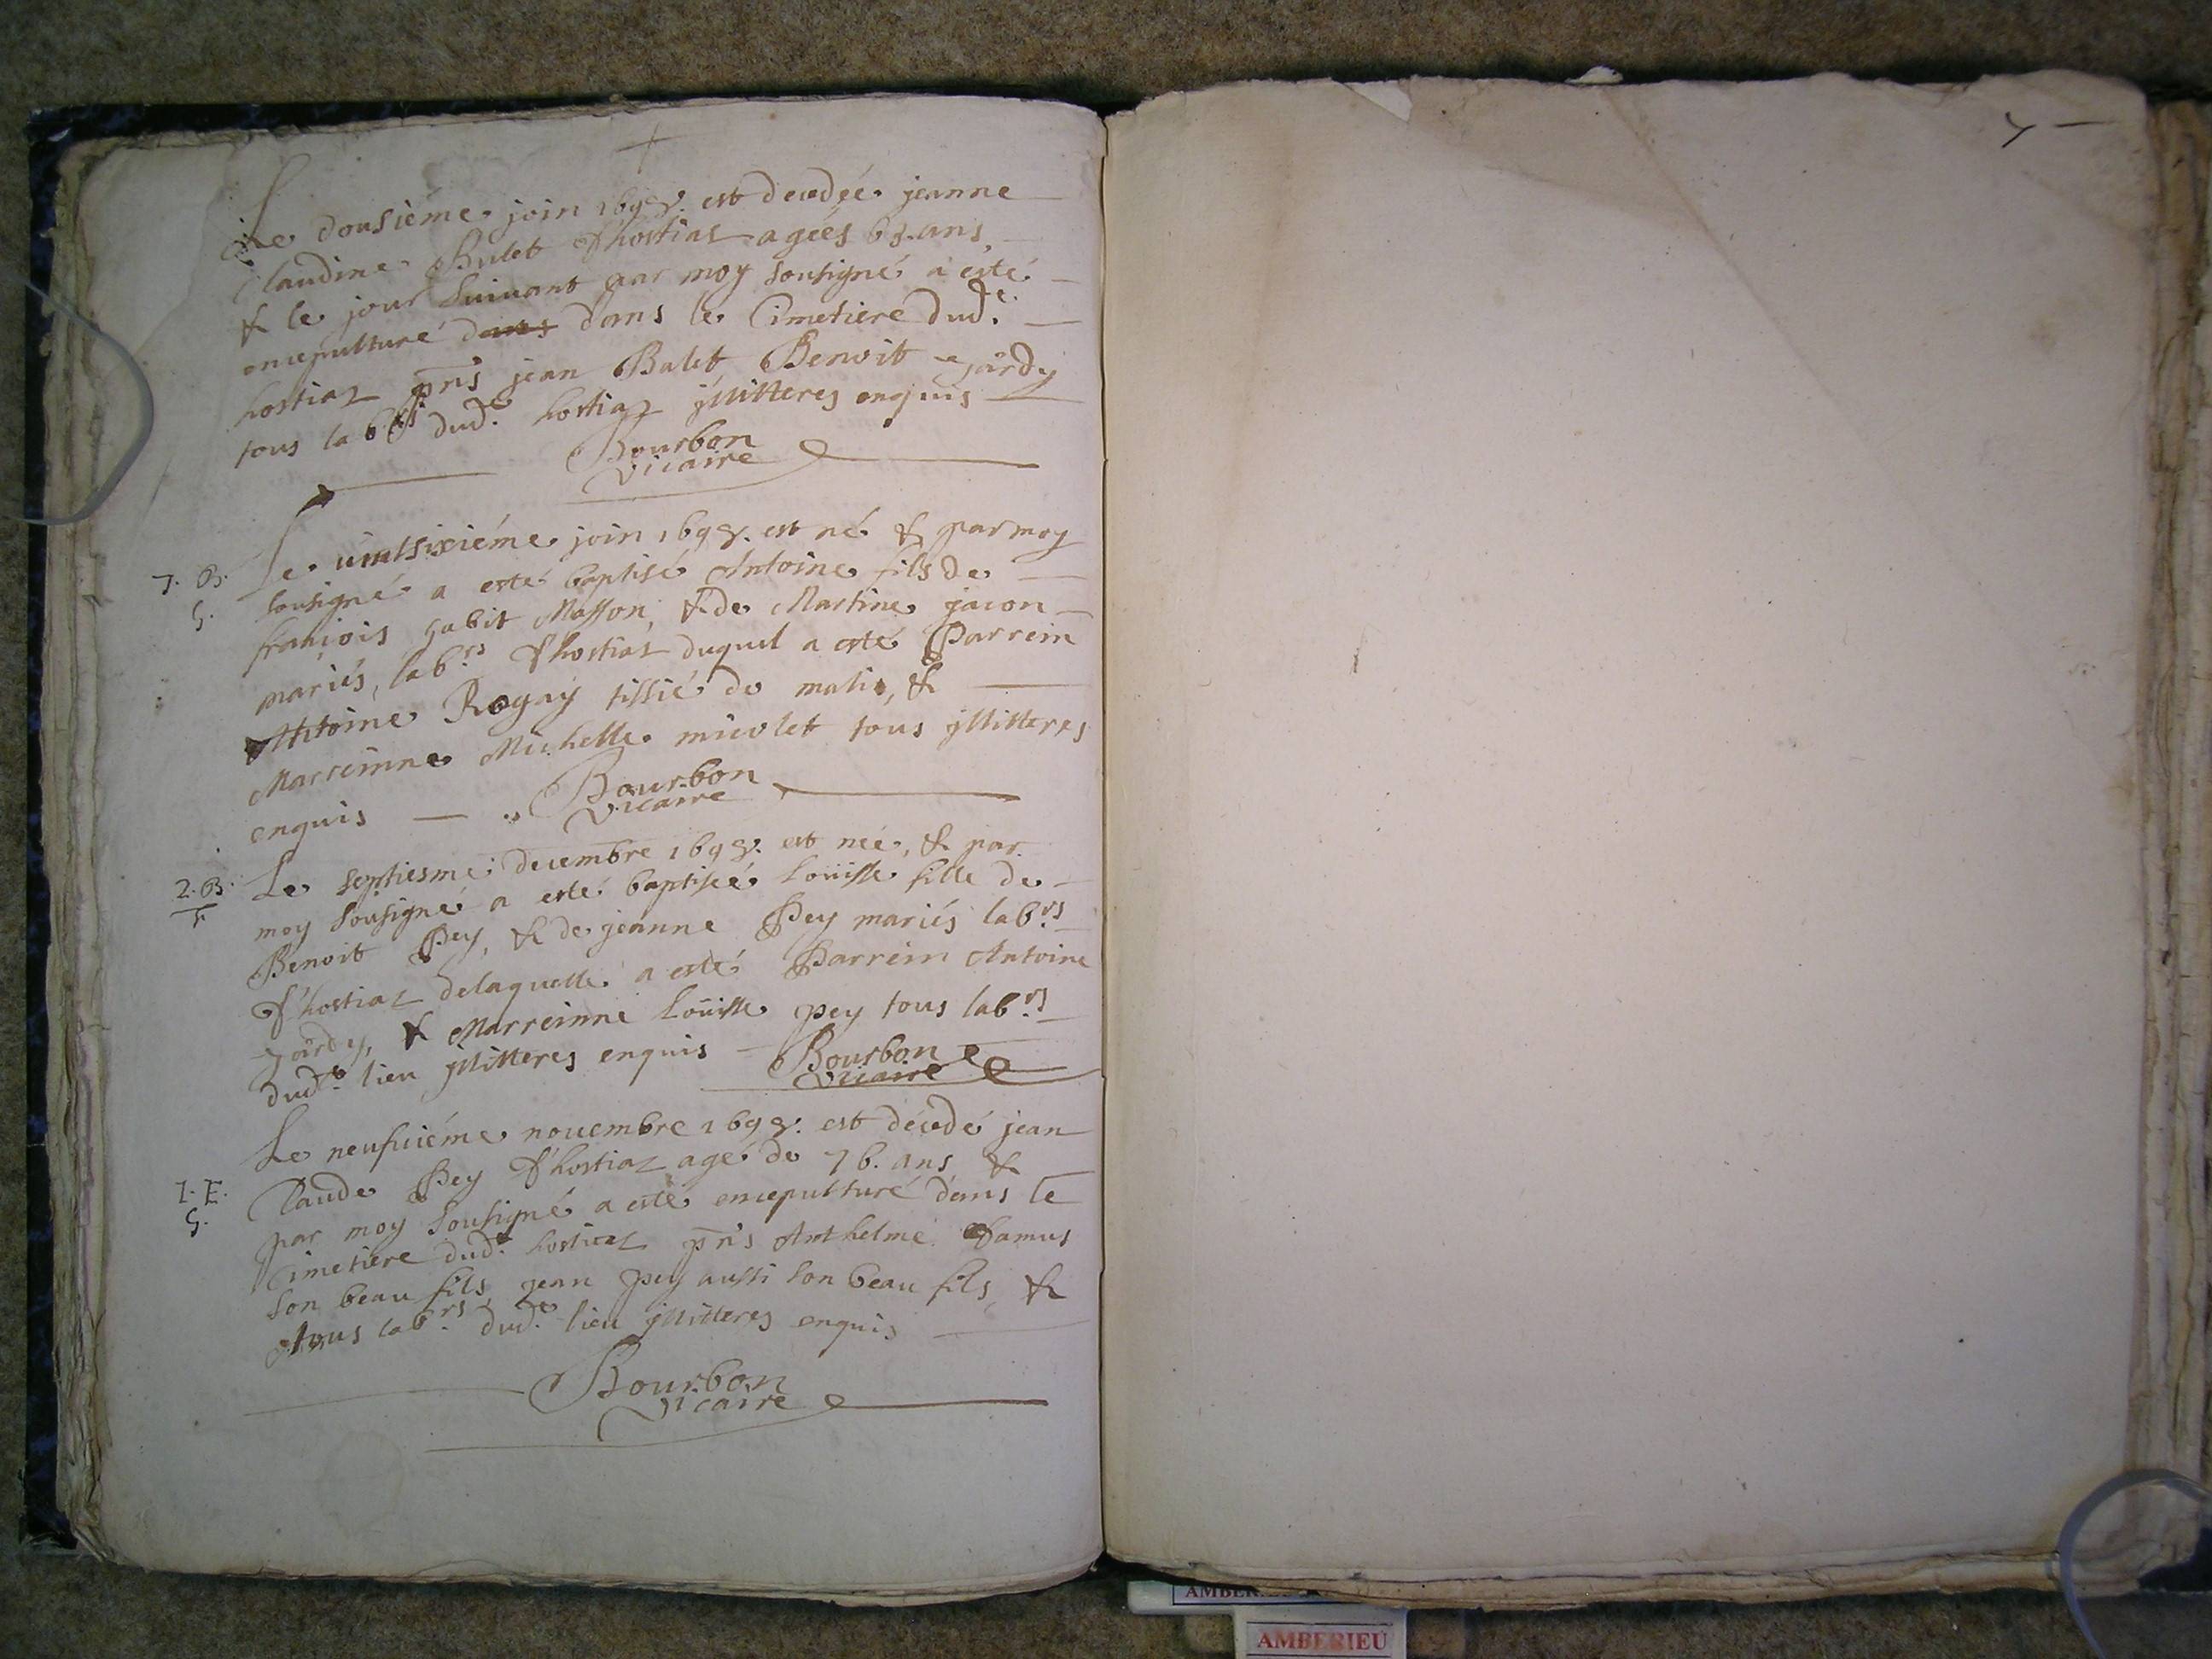 Le dousiéme join 1698. est decedée jeanne
Claudine Bulet d'hostiaz ageés 63. ans,
& le jour suiuant par moy sousigné a esté
encepulturé dans dans le Cimetiere dud.e
hostiaz pñs jean Balet Benoit jårdy
tous lab.rs dud.e hostiaz jllitteres enquis
Bourbon
vicaire
Le uintsixiéme join 1698. est né & par moy
7. B.
G.
sousigné a esté baptisé Antoine fils de
françois Gabit Masson, & de Martine jacon
mariés, lab.rs d'hostiaz duquel a esté Parrein
Antoine Rogay tissié de &
Marreinne Michelle micolet tous jllitteres
enquis Bourbon
vicaire
Le septiesme decembre 1698. est neé, & par
2. B.
F
moy sousigné a esté baptiseé Loüisse fille de
Benoit Pey, & de jeanne Pey mariés lab.rs
d'hostiaz delaquelle a esté Parrein Antoine
jårdy, & Marreinne Loüisse pey tous lab.rs
dud.e lieu jllitteres enquis Bourbon
vicaire
Le neufuiéme nouembre 1698. est décedé jean
Claude Pey d'hostiaz agé de 76. ans &
1. E.
G.
par moy sousigné a esté encepulturé dans le
Cimetiere dud.e hostiaz pñs Anthelme Camus
son beau fils, jean pey aussi son beau fils, &
tous lab.rs dud.e lieu jllitteres enquis
Bourbon
vicaire
7
AMBERIEU